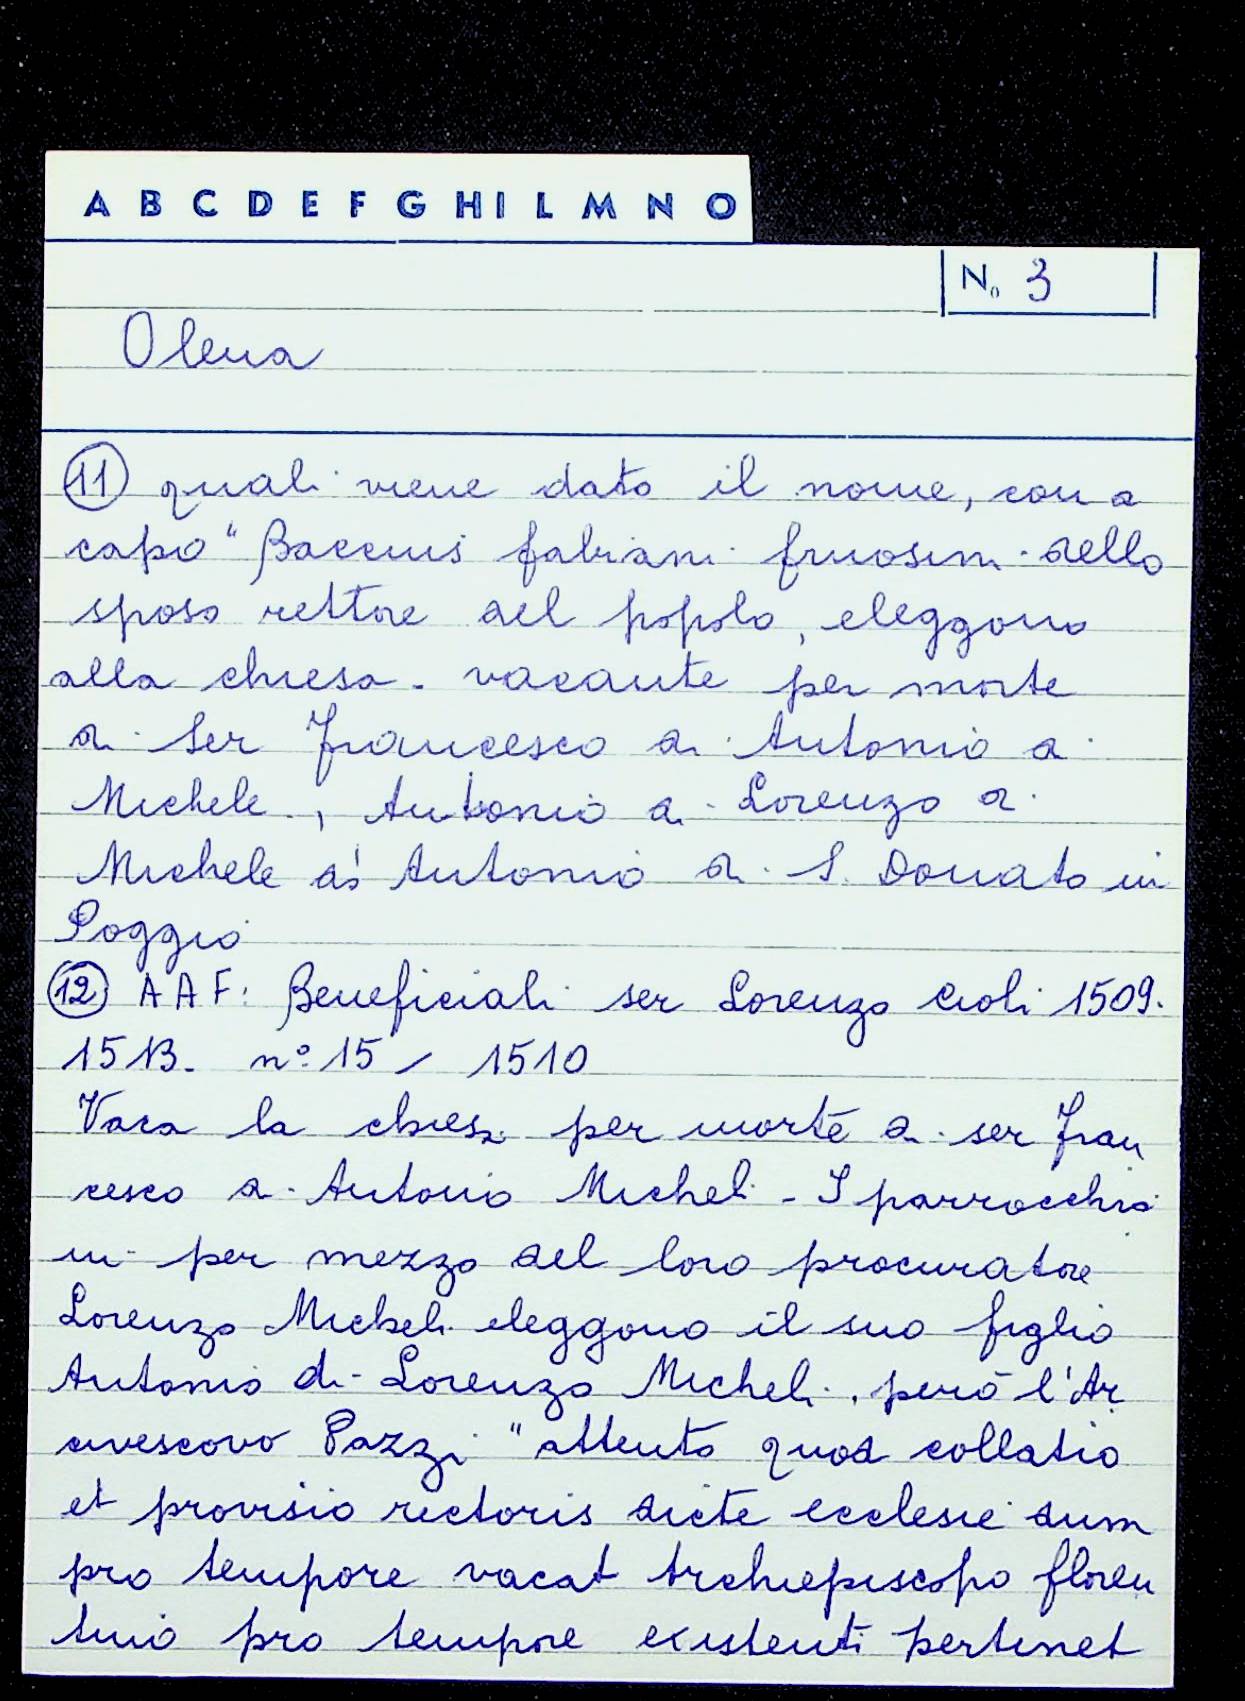 A B C D E F G H I L M N O
No 3
Olena
11 quali viene dato il nome, con a
capo "Baccius fabiani fruosini dello
sposo rettore del popolo, eleggono
alla chiesa - vacante per morte
di Ser Francesco di Antonio di
Michele, Antonio di Lorenzo di
Michele di Antonio di S. Donato in
Poggio
12 A A F: Beneficiali ser Lorenzo Cioli 1509-
1513 - n° 15 / 1510
Vaca la chiesa per morte di ser Fran
cesco di Antonio Micheli - I parrocchia
ni per mezzo del loro procuratore
Lorenzo Micheli eleggono il suo figlio
Antonio di Lorenzo Micheli, però l'Ar
civescovo Pazzi "attento quod collatio
et provisio rectoris dicte ecclesie dum
pro tempore vacat Archiepiscopo floren
tino pro tempore existenti pertinet